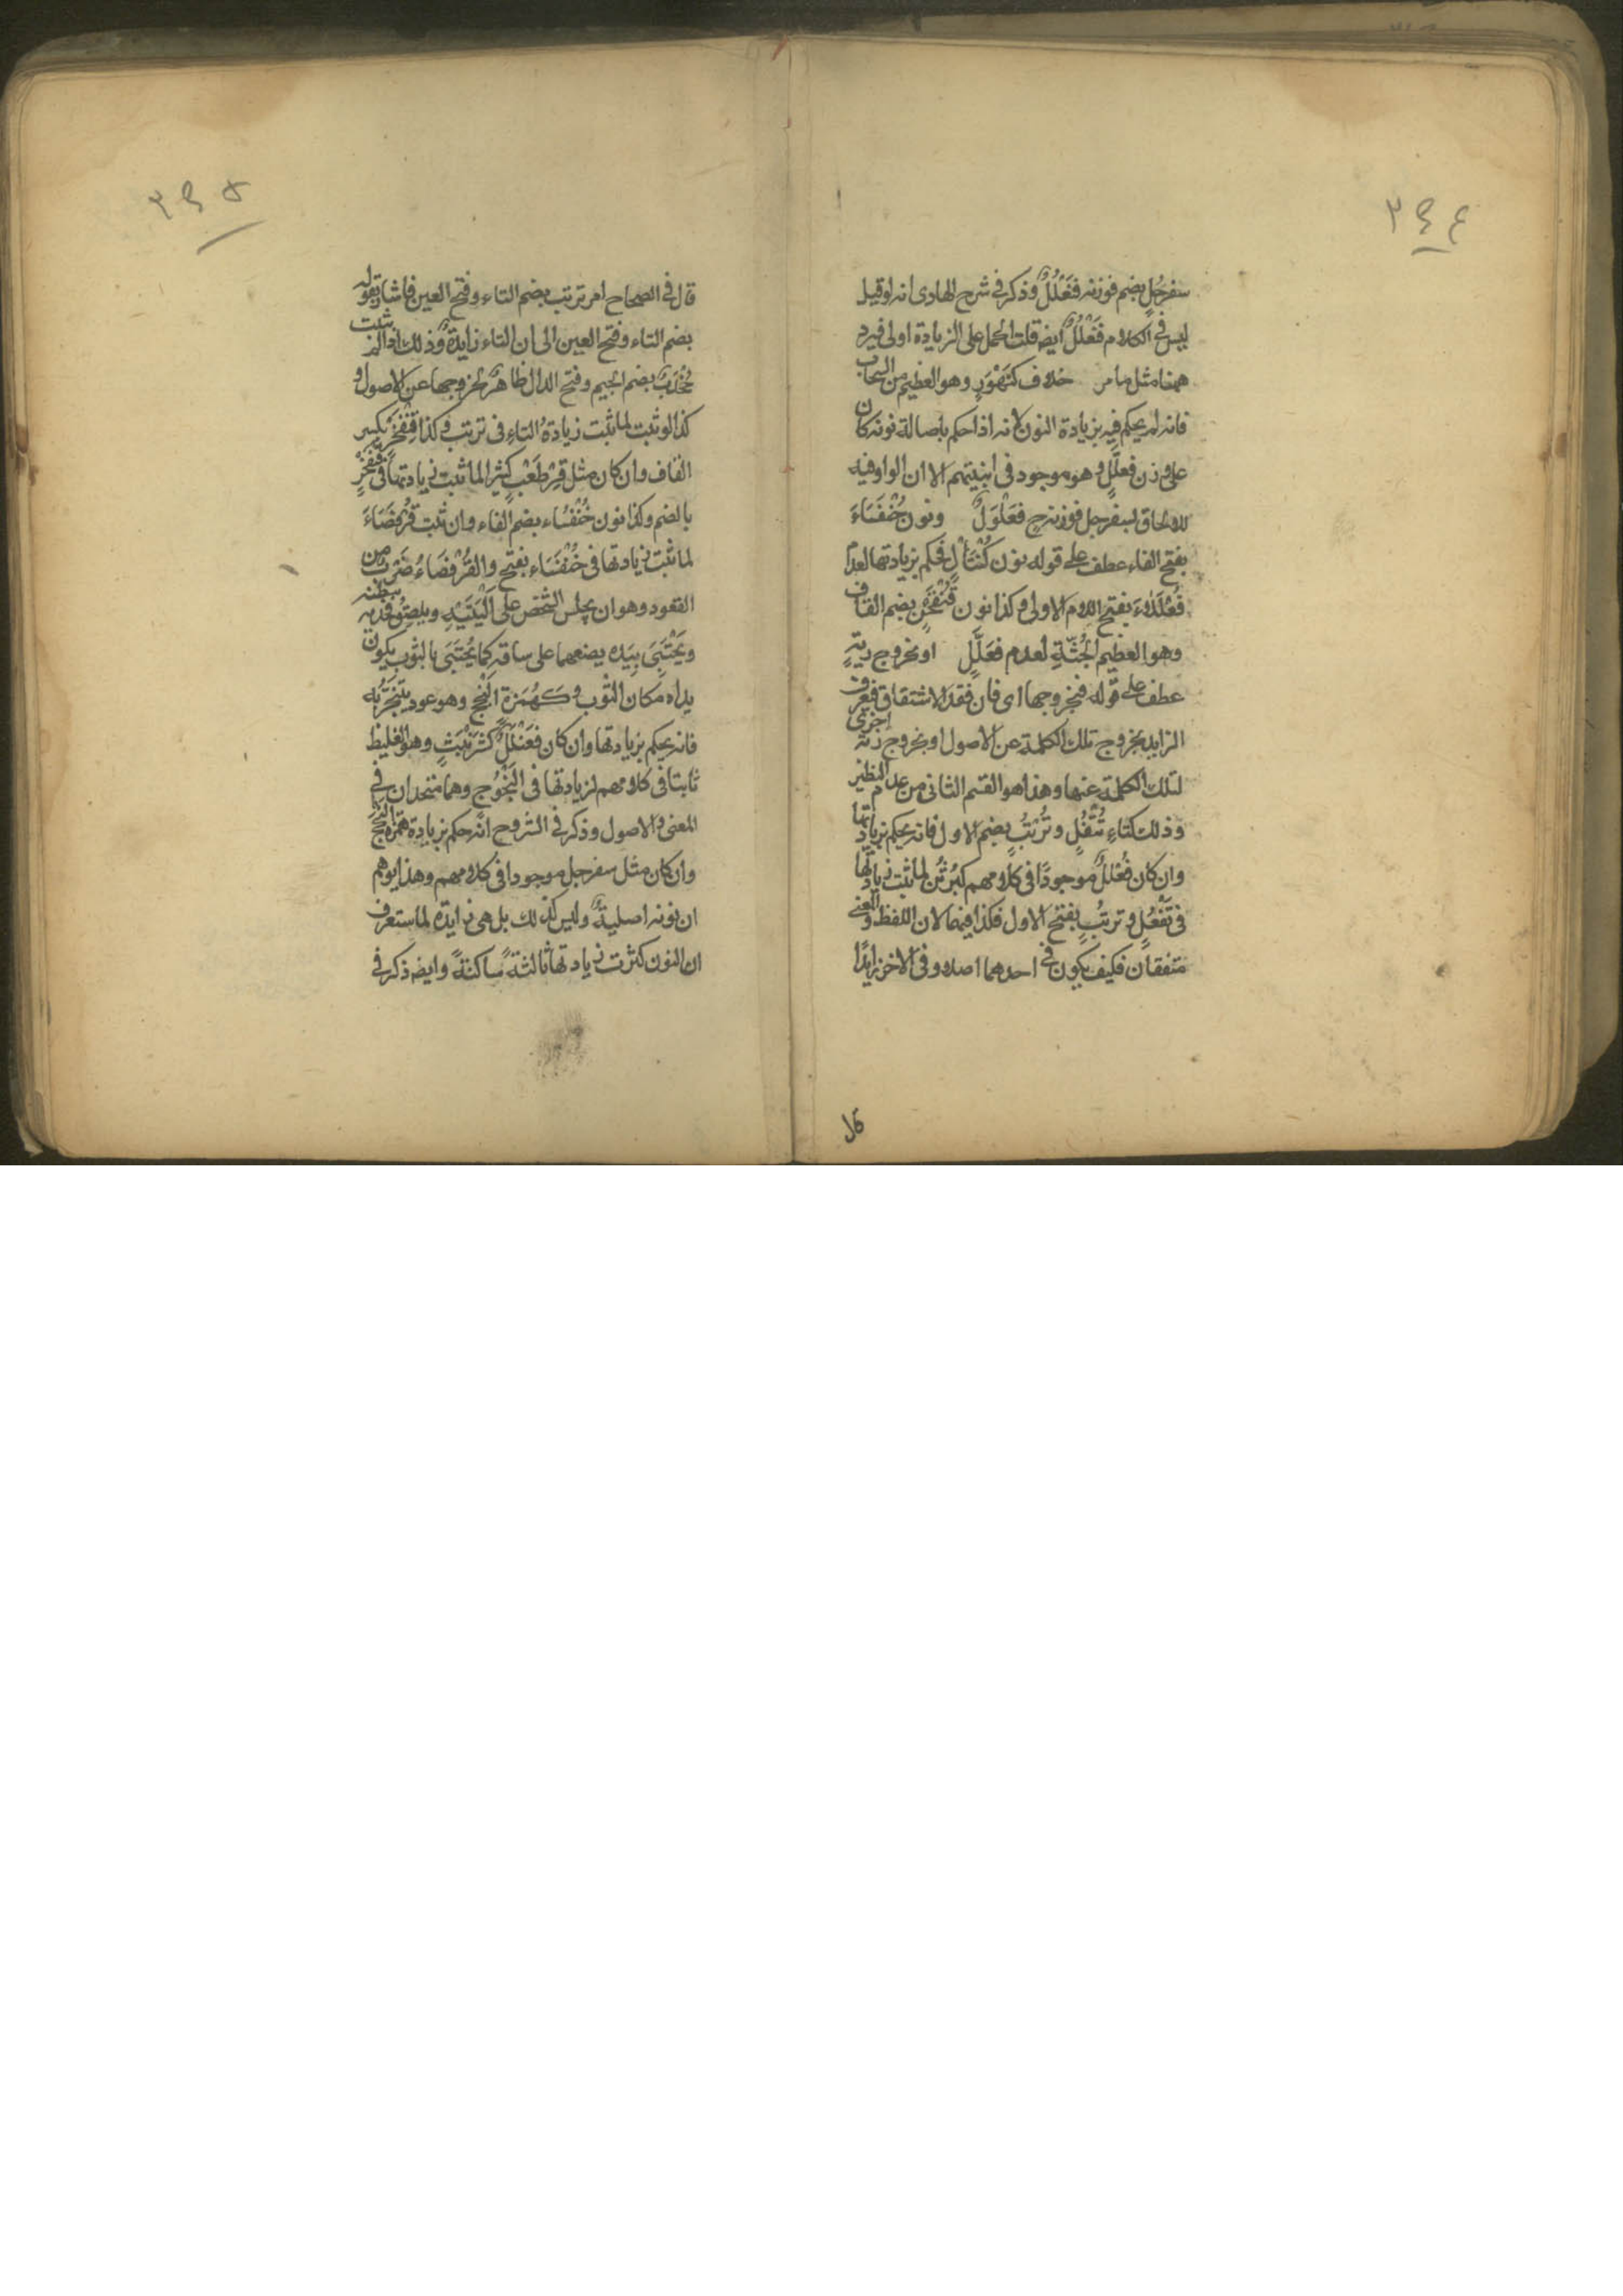 ٣٩٤
سفرجُل بضم فوزنه فَعَلُّلٌ وذكر في شرح الهادى انه لو قيل
ليس في الكلام فَعَلُّلٌ ايضا قلت الحمل على الزيادة اولى فيرد
ههنا مثل ما مر خلاف كَنَهْوَرٍ وهو العظيم من السحاب
فانه لم يحكم فيه بزيادة النون لانه اذا حكم باصالة نونه كان
على وزن فعلَّلٍ وهو موجود في ابنيتهم الا ان الواو فيه
للالحاق بسفرجل فوزنه ح فَعَلْوَلٌ ونون خُنْفَسَاءَ
بفتح الفاء عطف على قوله نون كُنْتَأْلٍ فحكم بزيادتها لعدم
فُعْلَلاءَ بفتح اللام الاولى وكذا نون قُنْفَخْرٍ بضم القاف
وهو العظيم الجُثّةِ لعدم فُعْلَلٍّ او بخروج زنةٍ
عطف على قوله فبخروجها اى فان فقد الاشتقاق فيعرف
الزايد بخروج تلك الكلمة عن الاصول او بخروج زنة اخرى
لتلك الكلمة عنها وهذا هو القسم الثانى من عدم النظير
وذلك كتاءِ تُتْفُلٍ وتُرْتُبٍ بضم الاول فانه يحكم بزيادتها
وان كان فُعْلُلٌ موجودًا في كلامهم كبُرْثُنٍ لما ثبت زيادتها
في تَتْفُلٍ وتَرتُبٍ بفتح الاول فكذا فيهما لان اللفظ والمعنى
متفقان فكيف يكون في احدهما اصلا وفي الاخر زايدًا
٣٩٥
قال في الصحاح امر ترتب بضم التاء وفتح العين فاشار بقوله
بضم التاء وفتح العين الى ان التاء زايدةٌ وذلك اذا لم يثبت
جُخْدَبٌ بضم الجيم وفتح الدال ظاهرٌ لخروجها عن الاصول و
كذا لو ثبت لما ثبت زيادةُ التاءِ في ترتب وكذا قِنْفَخْرٌ بكسر
القاف وان كان مثل قِرْطَعْبٍ كثيرا لما ثبت زيادتها في قُنْفَخْرٍ
بالضم وكذا نون خُنْفُسَاء بضم الفاء وان ثبت قُرْفُصَاءَ
لما ثبت زيادتها في خُنْفَسَاء بفتح والقُرْفُصَاءُ ضَرْبٌ من
القعود وهو ان يجلس الشخص على اَلْيَتَيْهِ ويلصِقُ فخذيه ببطنه
ويَحْتَبِىَ بِيَدَيه يضعهما على ساقيه كما يُحْتَبَى بالثوب يكون
يداه مكان الثوب وكهَمْزة اَلَنْجَجٍ وهو عود يتبخَّرُ به
فانه يحكم بزيادتها وان كان فَعَنْلَلٌ كشَرَنْبَثٍ وهو الغليظ
ثابتا في كلامهم لزيادتها في اَلَنْجُوجٍ وهما متحدان في
المعنى والاصول وذكر في الشروح انّه حكم بزيادة همزة النجج
وان كان مثل سفرجل موجودا في كلامهم وهذا يوهم
ان نونه اصليةٌ وليس كذلك بل هى زايدة لما ستعرف
ان النون كثرت زيادتها ثالثةً ساكنةً وايضا ذكر في